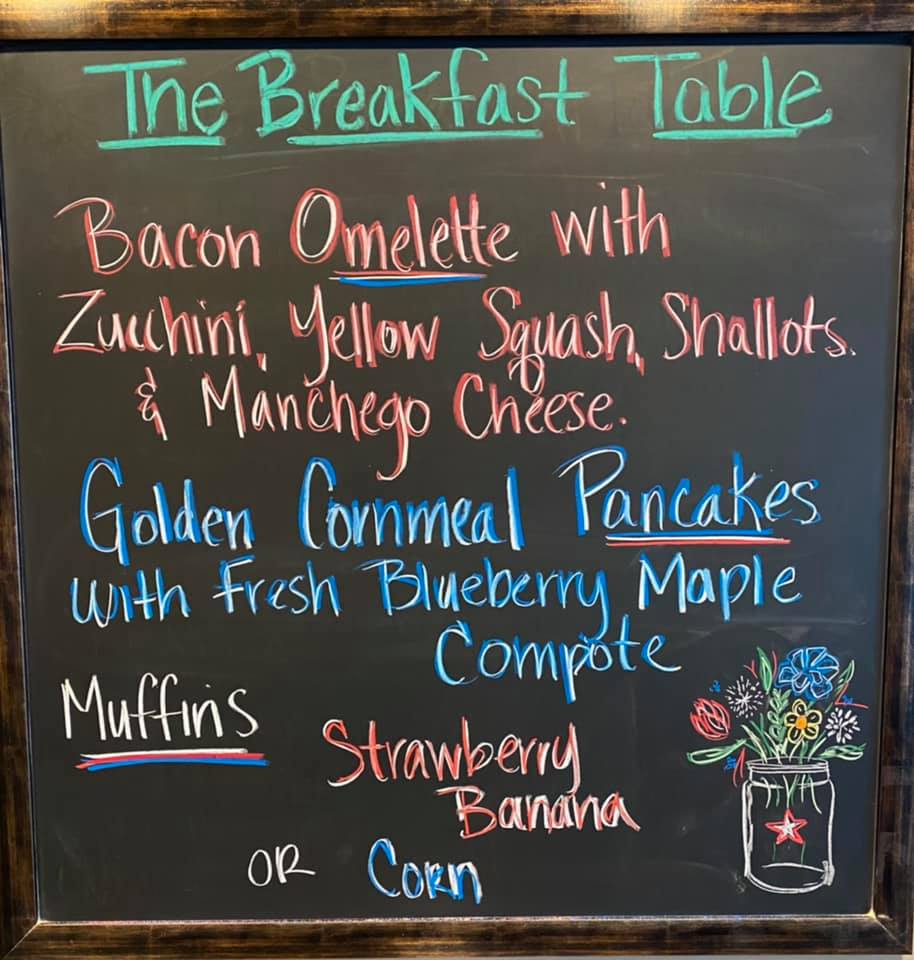 The Breakfast Table
Bacon Omelette with
Zucchini, Yellow Squash, Shallots.
& Manchego Cheese.
Golden Cornmeal Pancakes
with Fresh Blueberry Maple
Compote
Muffins
Strawberry
Banana
OR Corn